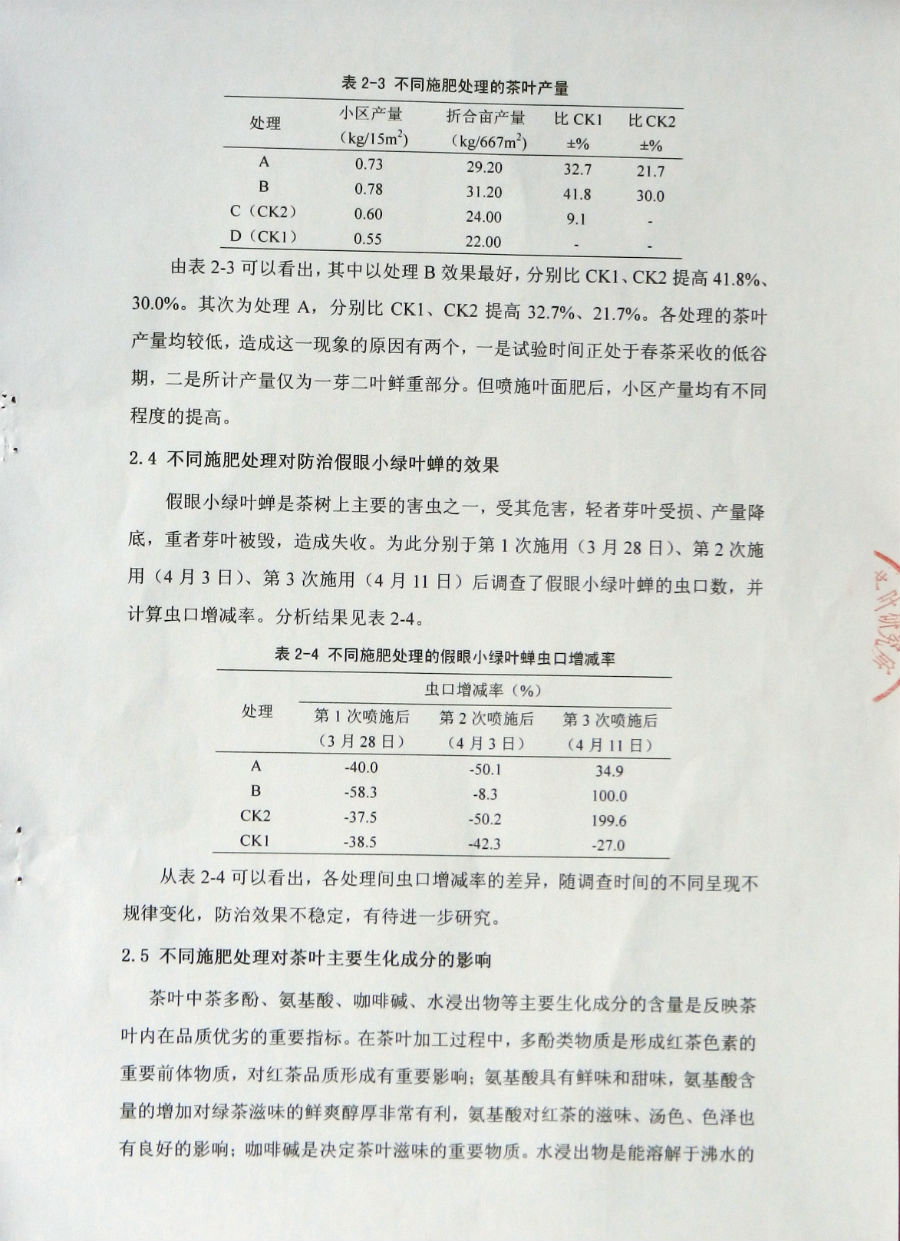 表 2-3 不同施肥处理的茶叶产量
处理 小区产量 折合亩产量 比 CK1 比 CK2
（kg/15m²） （kg/667m²） ±% ±%
A 0.73 29.20 32.7 21.7
B 0.78 31.20 41.8 30.0
C（CK2） 0.60 24.00 9.1 -
D（CK1） 0.55 22.00 - -
由表 2-3 可以看出，其中以处理 B 效果最好，分别比 CK1、CK2 提高 41.8%、
30.0%。其次为处理 A，分别比 CK1、CK2 提高 32.7%、21.7%。各处理的茶叶
产量均较低，造成这一现象的原因有两个，一是试验时间正处于春茶采收的低谷
期，二是所计产量仅为一芽二叶鲜重部分。但喷施叶面肥后，小区产量均有不同
程度的提高。
2.4 不同施肥处理对防治假眼小绿叶蝉的效果
假眼小绿叶蝉是茶树上主要的害虫之一，受其危害，轻者芽叶受损、产量降
底，重者芽叶被毁，造成失收。为此分别于第 1 次施用（3 月 28 日）、第 2 次施
用（4 月 3 日）、第 3 次施用（4 月 11 日）后调查了假眼小绿叶蝉的虫口数，并
计算虫口增减率。分析结果见表 2-4。
表 2-4 不同施肥处理的假眼小绿叶蝉虫口增减率
虫口增减率（%）
处理 第 1 次喷施后 第 2 次喷施后 第 3 次喷施后
（3 月 28 日） （4 月 3 日） （4 月 11 日）
A -40.0 -50.1 34.9
B -58.3 -8.3 100.0
CK2 -37.5 -50.2 199.6
CK1 -38.5 -42.3 -27.0
从表 2-4 可以看出，各处理间虫口增减率的差异，随调查时间的不同呈现不
规律变化，防治效果不稳定，有待进一步研究。
2.5 不同施肥处理对茶叶主要生化成分的影响
茶叶中茶多酚、氨基酸、咖啡碱、水浸出物等主要生化成分的含量是反映茶
叶内在品质优劣的重要指标。在茶叶加工过程中，多酚类物质是形成红茶色素的
重要前体物质，对红茶品质形成有重要影响；氨基酸具有鲜味和甜味，氨基酸含
量的增加对绿茶滋味的鲜爽醇厚非常有利，氨基酸对红茶的滋味、汤色、色泽也
有良好的影响；咖啡碱是决定茶叶滋味的重要物质。水浸出物是能溶解于沸水的